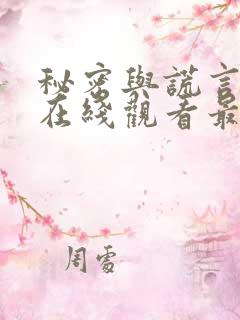 秘密與謊言
在綫觀看最
周雷